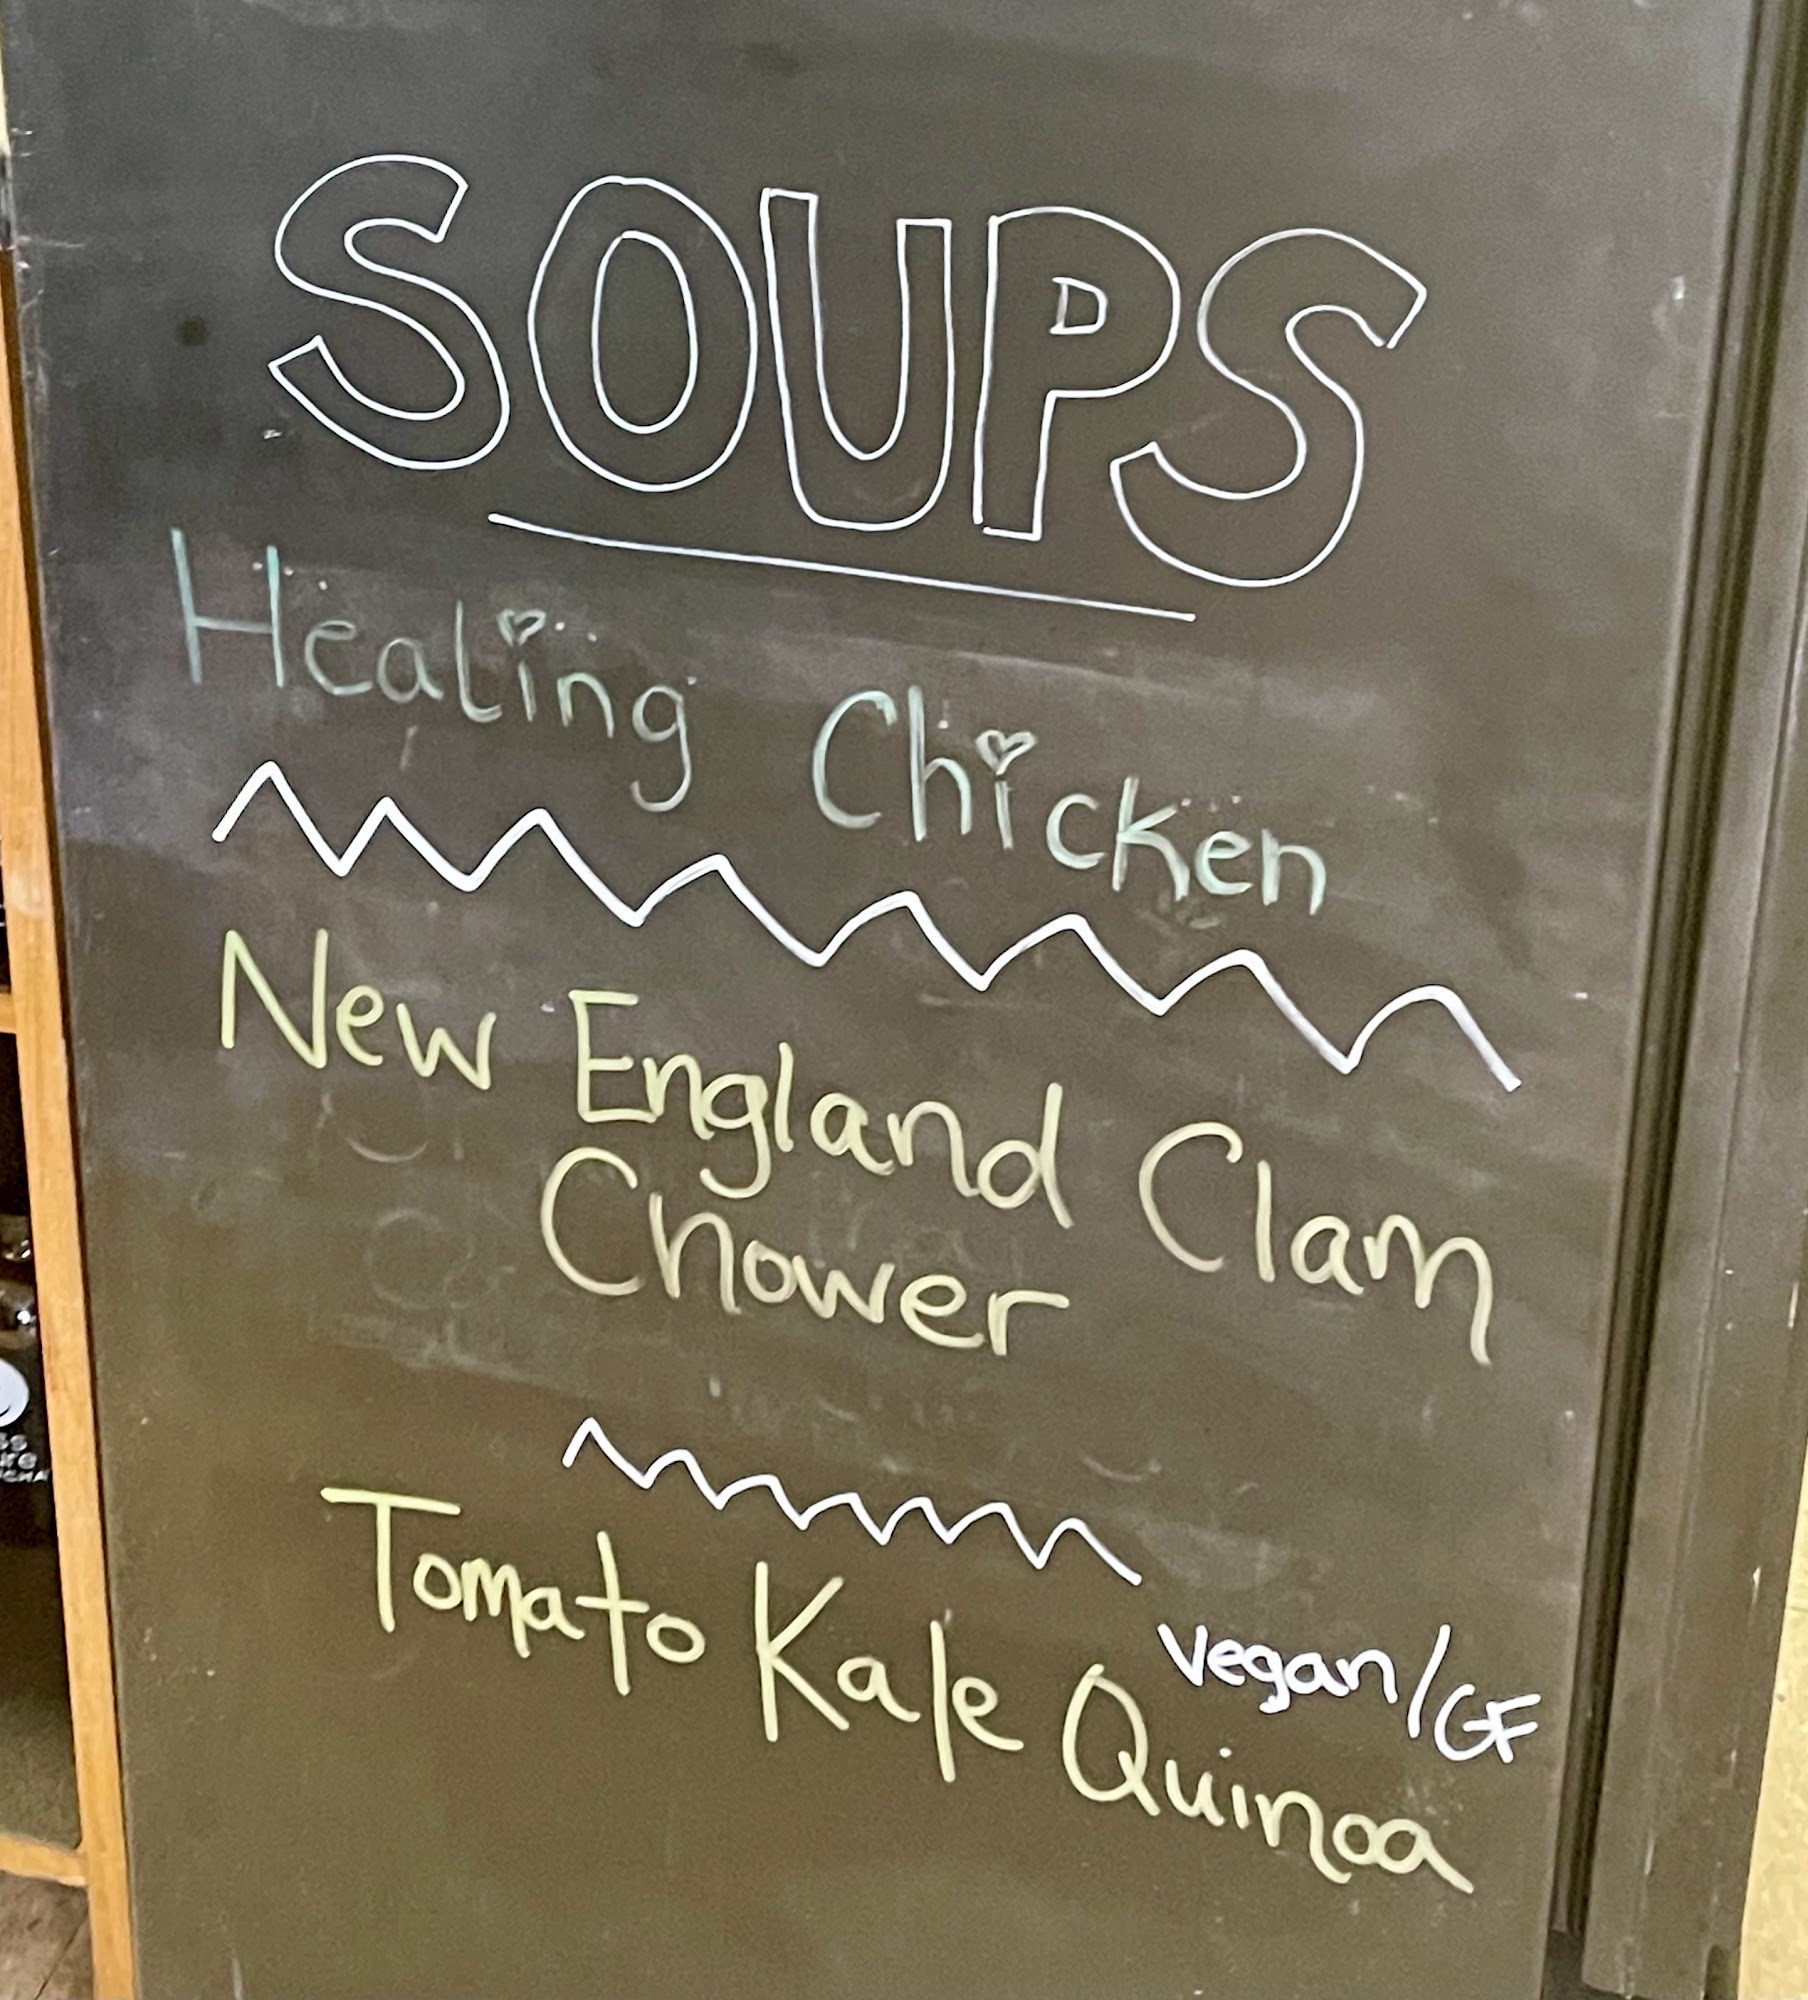 SOUPS
Healing Chicken
New England Clam
Chower
vegan/GF
Tomato Kale Quinoa